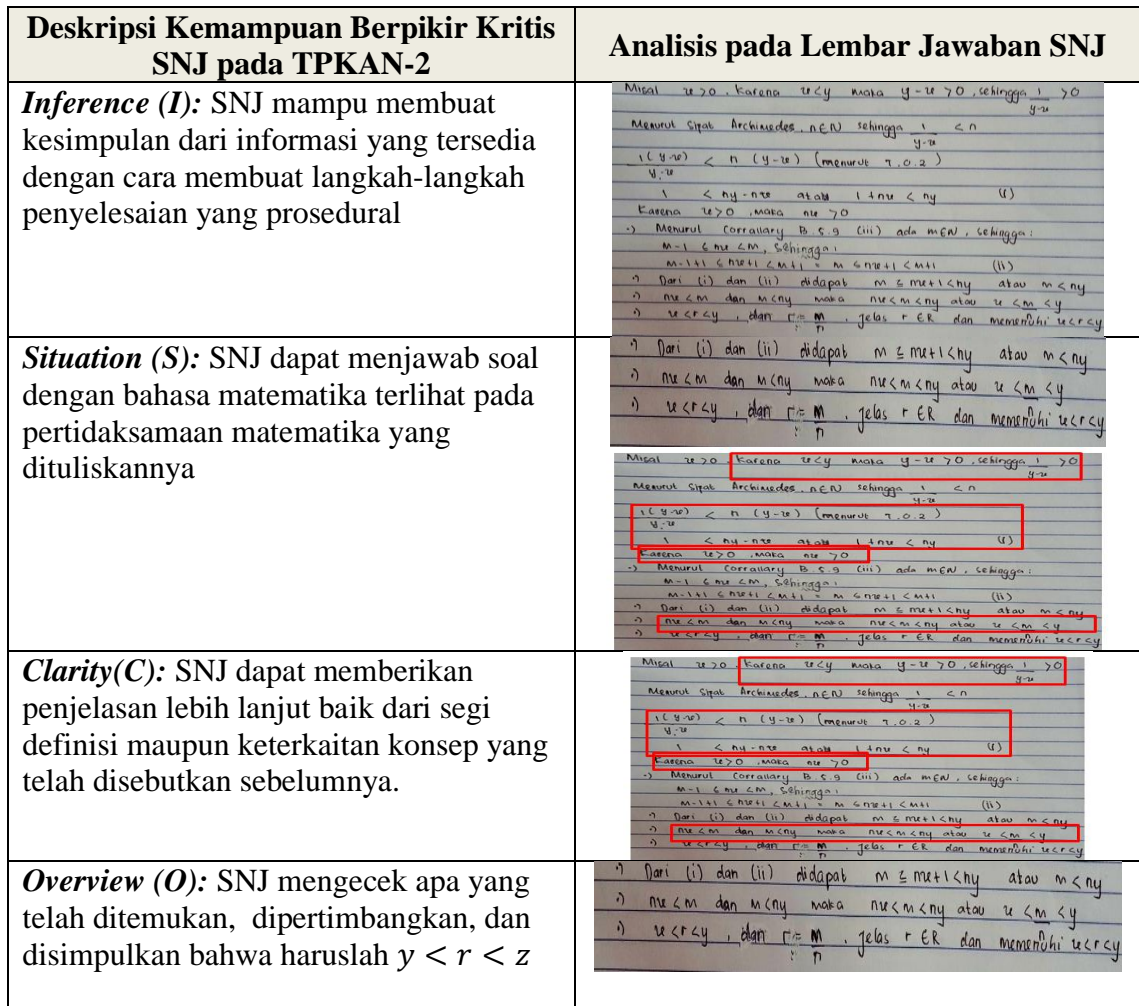 Deskripsi Kemampuan Berpikir Kritis
SNJ pada TPKAN-2
Analisis pada Lembar Jawaban SNJ
Inference (I): SNJ mampu membuat
kesimpulan dari informasi yang tersedia
dengan cara membuat langkah-langkah
penyelesaian yang prosedural
Misal x>0. Karena x<y maka y-x>0, sehingga 1/(y-x) >0
Menurut Sipat Archimedes, n∈N sehingga 1/(y-x) < n
1(y-x)/(y-x) < n (y-x) (menurut 7.0.2)
1 < ny-nx atau 1+nx < ny (i)
Karena x>0, maka nx >0
·) Menurut Corrallary B.5.9 (iii) ada m∈N, sehingga:
m-1 ≤ nx <m, sehingga:
m-1+1 ≤ nx+1 <m+1 = m ≤ nx+1 <m+1 (ii)
·) Dari (i) dan (ii) didapat m ≤ nx+1<ny atau m<ny
·) nx<m dan m<ny maka nx<m<ny atau x <m/n <y
·) x<r<y, dan r=m/n, jelas r ∈R dan memenuhi x<r<y
Situation (S): SNJ dapat menjawab soal
dengan bahasa matematika terlihat pada
pertidaksamaan matematika yang
dituliskannya
·) Dari (i) dan (ii) didapat m ≤ nx+1<ny atau m<ny
·) nx<m dan m<ny maka nx<m<ny atau x <m/n <y
·) x<r<y, dan r=m/n, jelas r ∈R dan memenuhi x<r<y
Misal x>0. Karena x<y maka y-x>0, sehingga 1/(y-x) >0
Menurut Sipat Archimedes, n∈N sehingga 1/(y-x) < n
1(y-x)/(y-x) < n (y-x) (menurut 7.0.2)
1 < ny-nx atau 1+nx < ny (i)
Karena x>0, maka nx >0
·) Menurut Corrallary B.5.9 (iii) ada m∈N, sehingga:
m-1 ≤ nx <m, sehingga:
m-1+1 ≤ nx+1 <m+1 = m ≤ nx+1 <m+1 (ii)
·) Dari (i) dan (ii) didapat m ≤ nx+1<ny atau m<ny
·) nx<m dan m<ny maka nx<m<ny atau x <m/n <y
·) x<r<y, dan r=m/n, jelas r ∈R dan memenuhi x<r<y
Clarity(C): SNJ dapat memberikan
penjelasan lebih lanjut baik dari segi
definisi maupun keterkaitan konsep yang
telah disebutkan sebelumnya.
Misal x>0. Karena x<y maka y-x>0, sehingga 1/(y-x) >0
Menurut Sipat Archimedes, n∈N sehingga 1/(y-x) < n
1(y-x)/(y-x) < n (y-x) (menurut 7.0.2)
1 < ny-nx atau 1+nx < ny (i)
Karena x>0, maka nx >0
·) Menurut Corrallary B.5.9 (iii) ada m∈N, sehingga:
m-1 ≤ nx <m, sehingga:
m-1+1 ≤ nx+1 <m+1 = m ≤ nx+1 <m+1 (ii)
·) Dari (i) dan (ii) didapat m ≤ nx+1<ny atau m<ny
·) nx<m dan m<ny maka nx<m<ny atau x <m/n <y
·) x<r<y, dan r=m/n, jelas r ∈R dan memenuhi x<r<y
Overview (O): SNJ mengecek apa yang
telah ditemukan, dipertimbangkan, dan
disimpulkan bahwa haruslah y < r < z
·) Dari (i) dan (ii) didapat m ≤ nx+1<ny atau m<ny
·) nx<m dan m<ny maka nx<m<ny atau x <m/n <y
·) x<r<y, dan r=m/n, jelas r ∈R dan memenuhi x<r<y